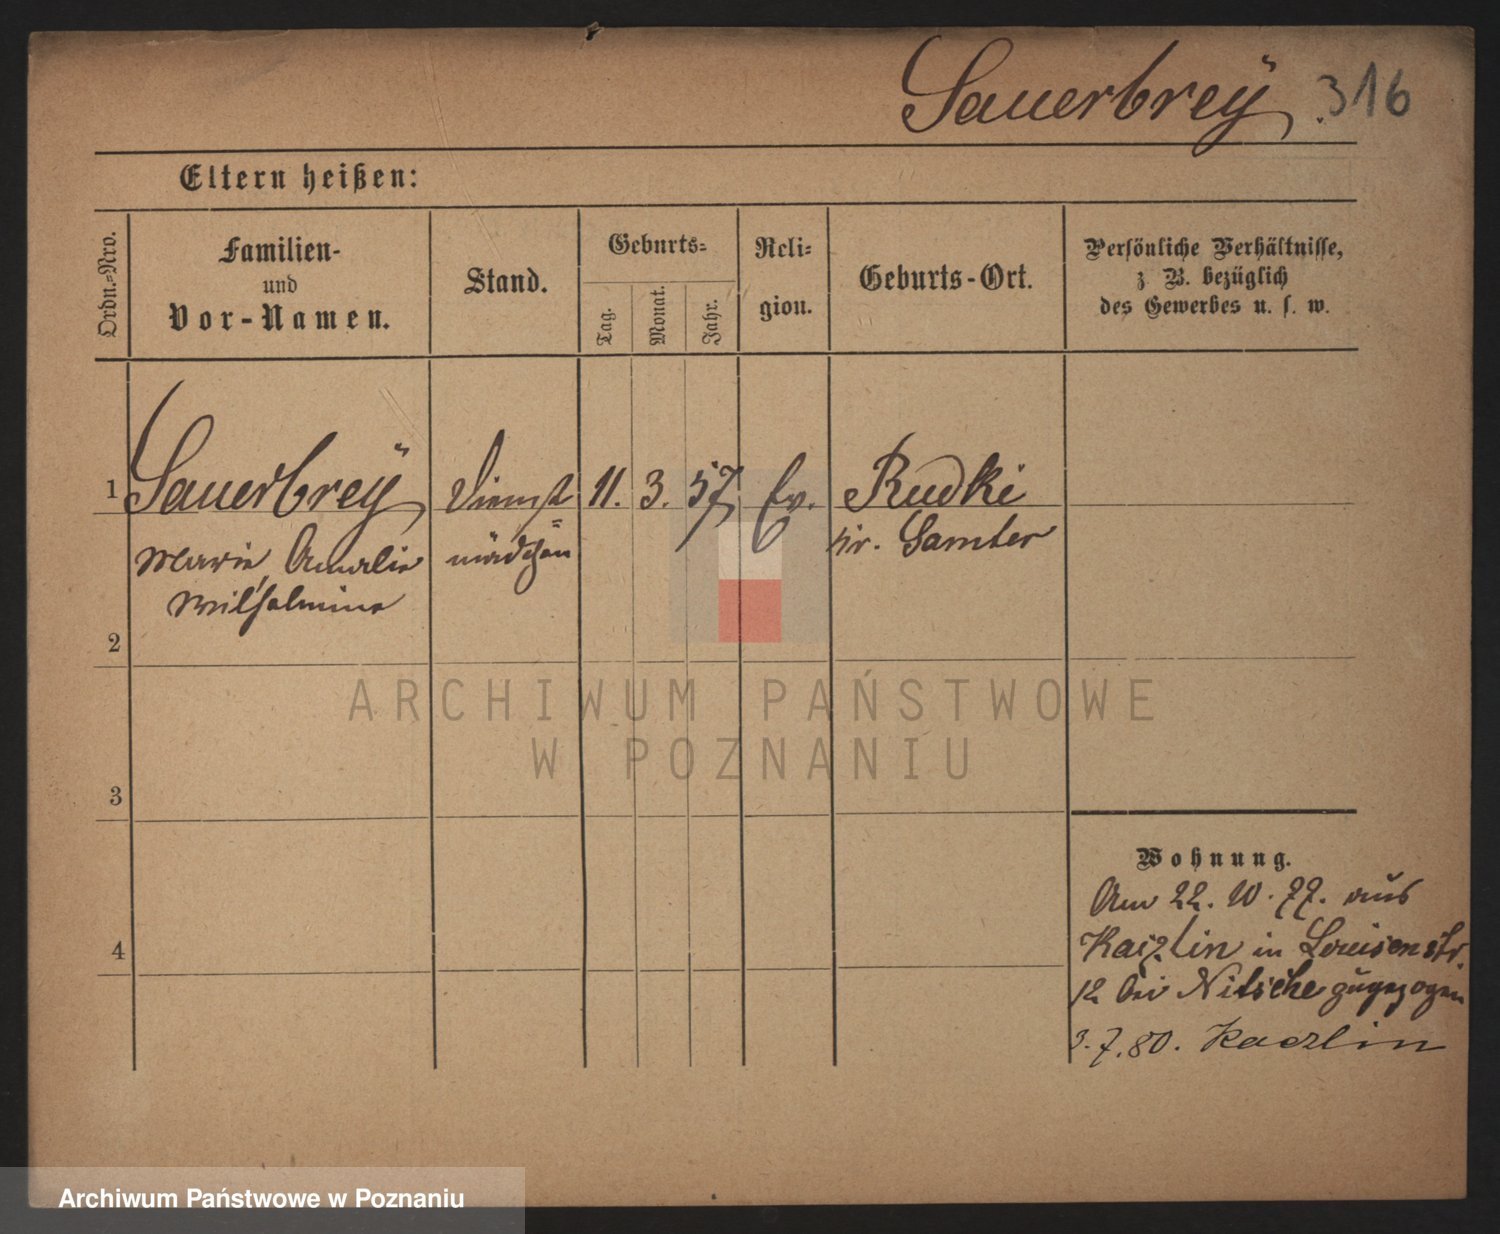 Sauerbreÿ. 316
Eltern heißen:
Ordn.=Nro.
Familien-
und
Vor-Namen.
Stand.
Geburts=
Tag.
Monat.
Jahr.
Reli=
gion.
Geburts-Ort.
Persönliche Verhältnisse,
z. B. bezüglich
des Gewerbes u. s. w.
1 Sauerbreÿ Dienst 11. 3. 57 Ev. Rudki
Marie Amalie = mädchen Kr. Samter
Wilhelmine
2
ARCHIWUM PAŃSTWOWE
W POZNANIU
3
Wohnung.
Am 22. 10. 77. aus
in Louisenstr.
4
12 bei Nitsche zugezogen
3. 7. 80. Kaczlin
Archiwum Państwowe w Poznaniu